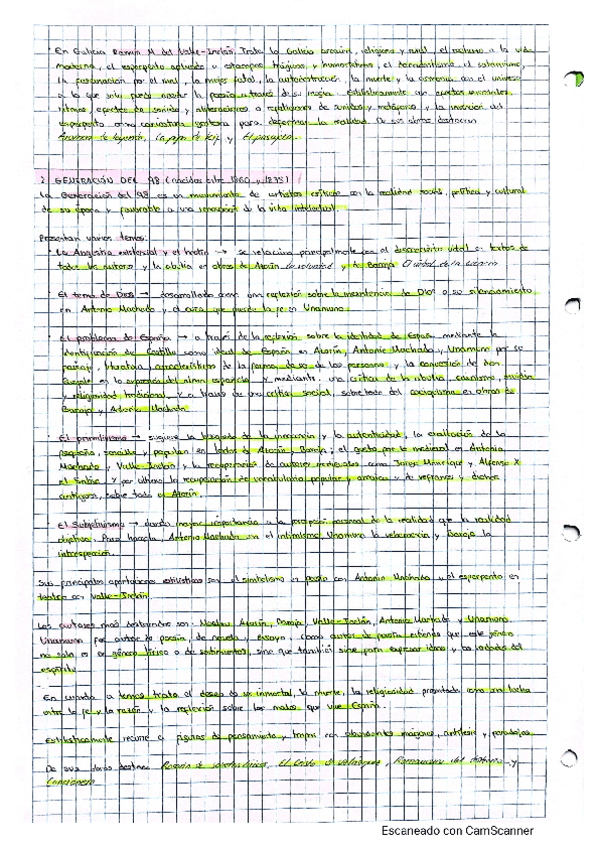 · En Galicia Ramón M del Valle-Inclán. Trata la Galicia arcaica, religiosa y rural, el rechazo a la vida
moderna, el esperpento aplicado a estampas trágicas y humorísticas, el tremendismo, el satanismo,
la fascinación por el mal, la mujer fatal, la autodestrucción, la muerte y la armonía con el universo
a la que solo puede acceder la poesía a través de su magia. Estilísticamente con efectos
ritmo, efectos de sonido y aliteraciones o repeticiones de sonidos y metáforas y la inserción del
esperpento como caricatura grotesca para deformar la realidad. De sus obras destacan
Aromas de leyenda, La pipa de kif y El pasajero.
2. GENERACIÓN DEL 98 (nacidos entre 1860 y 1875)
La Generación del 98 es un movimiento de artistas críticos con la realidad social, política y cultural
de su época y favorable a una renovación de la vida intelectual.
Presentan varios temas:
· La Angustia existencial y el hastío → se relaciona principalmente con el desconcierto vital en textos de
todos los autores y la abulia en obras de Azorín La voluntad y de Baroja El árbol de la ciencia
El tema de Dios → desarrollado como una reflexión sobre la inexistencia de Dios o su silenciamiento
en Antonio Machado y el ansia que puede la fe en Unamuno.
· El problema de España → a través de la reflexión sobre la identidad de España mediante la
identificación de Castilla como ideal de España en Azorín, Antonio Machado y Unamuno por su
paisaje, literatura y características de la forma de ser de las personas y la conversión de don
Quijote en la expresión del alma española y mediante una crítica de la abulia, cainismo, envidia
y religiosidad tradicional. Y a través de una crítica social, sobre todo del caciquismo en obras de
Baroja y Antonio Machado
· El primitivismo → sugiere la búsqueda de la inocencia y la autenticidad, la exaltación de lo
pequeño, sencillo y popular en textos de Azorín, Baroja; el gusto por lo medieval en Antonio
Machado y Valle Inclán; y la recuperación de autores medievales como Jorge Manrique y Alfonso X
el Sabio y por último la recuperación de vocabulario popular y arcaico y de refranes y dichos
antiguos, sobre todo en Azorín.
El Subjetivismo → dando mayor importancia a la percepción personal de la realidad que la realidad
objetiva. Para hacerlo, Antonio Machado usa el intimismo, Unamuno la vehemencia y Baroja la
introspección.
Sus principales aportaciones estilísticas son el simbolismo en poesía con Antonio Machado y el esperpento en
teatro con Valle-Inclán.
Los autores más destacados son: Azorín, Baroja, Valle-Inclán, Antonio Machado y Unamuno
Unamuno fue autor de poesía, de novela y ensayo, como autor de poesía entiende que este género
no solo es un género lírico o de sentimientos, sino que también sirve para expresar ideas y los estados del
espíritu
En cuanto a temas trata el deseo de ser inmortal, la muerte, la religiosidad presentada como una lucha
entre la fe y la razón y la reflexión sobre los males que vive España.
Estilísticamente recurre a figuras de pensamiento y tropos con abundantes imágenes, antítesis y paradojas.
De sus obras destaca Rosario de sonetos líricos, El Cristo de Velázquez, Romancero del destierro y
Cancionero
Escaneado con CamScanner